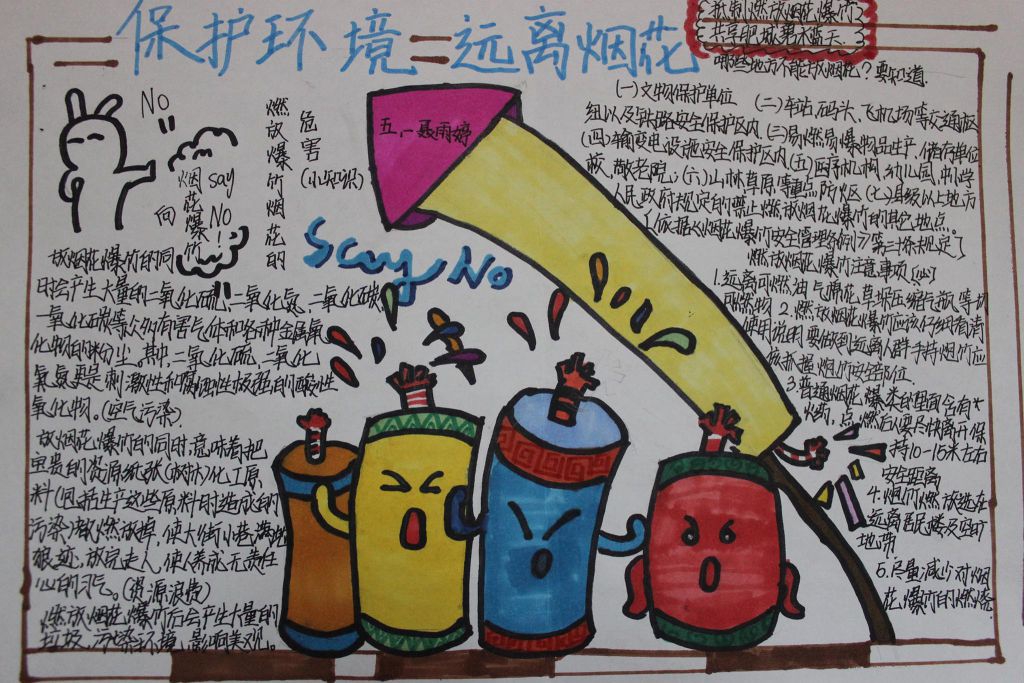 保护环境=远离烟花
抵制燃放烟花爆竹
共享肥城碧水蓝天
No
向烟花爆竹
say
NO!
燃放爆竹烟花的
危害
(小知识)
五.一聂雨婷
Say No
哪些地方不能放烟花?要知道
(一)文物保护单位 (二)车站、码头、飞机场等交通枢
纽以及铁路安全保护区内(三)易燃易爆物品生产、储存单位
(四)输变电设施安全保护区内(五)医疗机构、幼儿园、中小学
敬老院;(六)山林草原等重点防火区(七)县级以上地方
人民政府规定的禁止燃放烟花爆竹的其它地点。
(依据《烟花爆竹安全管理条例》第三十条规定)
燃放烟花爆竹注意事项
1.远离可燃油气、棉花、草垛、压缩气瓶等切
可燃物 2.燃放烟花爆竹应该仔细看清
使用说明要做到远离人群手持烟竹应
该抓握烟竹安全部位.
3.普通烟花爆类台里面含有
火药,点燃后要尽快离开保
持10-16米左右
安全距离
4.烟竹燃放选在
远离居民楼及空旷
地带
5.尽量减少对烟
花爆竹的燃烧
放烟花爆竹的同
时会产生大量的二氧化硫、二氧化氮、二氧化碳
一氧化碳等众多有害气体和各种金属氧
化物的粉尘。其中二氧化硫、二氧化
氮氮更是刺激性和腐蚀性极强的酸性
氧化物。(空气污染)
放烟花爆竹的同时,意味着把
宝贵的资源纸张(树木)化工原
料(包括生产这些原料时造成的
污染)都燃放掉,使大街小巷满地
狼迹,放完走人,使人养成无责任
心的习气。(资源浪费)
燃放烟花爆竹后会产生大量的
垃圾,污染环境,影响美观。